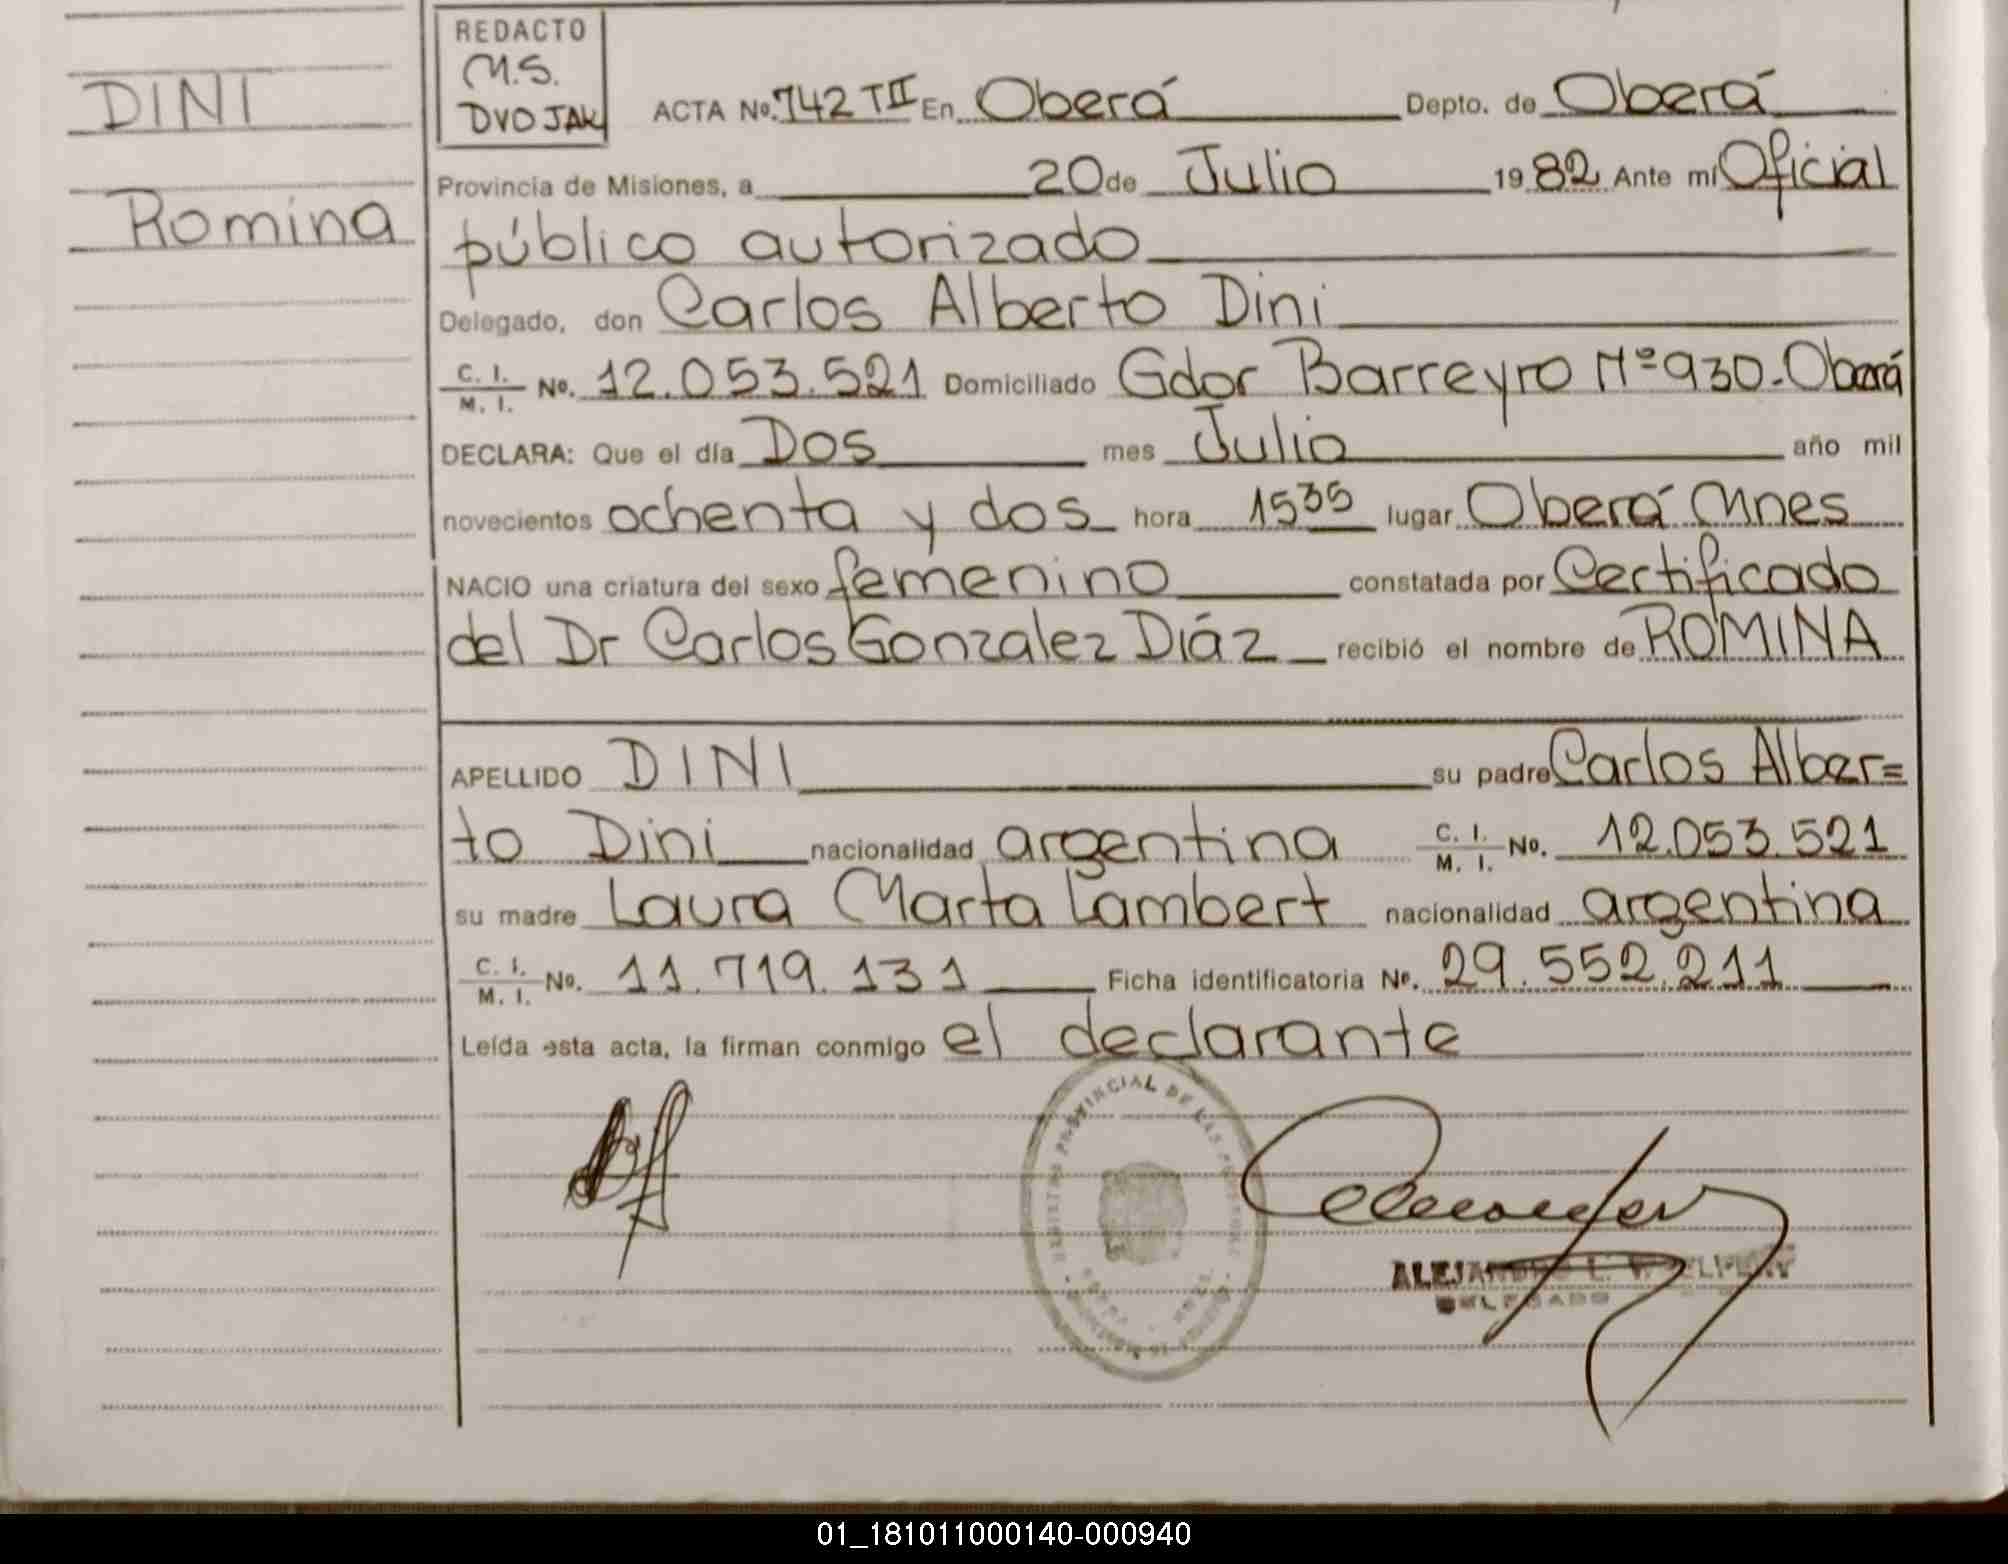 DINI
Romina
REDACTO
M.S.
DVOJAK
ACTA No. 742 TII En Oberá Depto. de Oberá
Provincia de Misiones, a 20 de Julio 1982 Ante mí Oficial
público autorizado
Delegado, don Carlos Alberto Dini
C. I. / M. I. No. 12.053.521 Domiciliado Gdor Barreyro Nº 930-Oberá
DECLARA: Que el día Dos mes Julio año mil
novecientos ochenta y dos hora 15 35 lugar Oberá Mnes
NACIO una criatura del sexo femenino constatada por Certificado
del Dr Carlos Gonzalez Díáz recibió el nombre de ROMINA
APELLIDO DINI su padre Carlos Alber=
to Dini nacionalidad argentina C. I. / M. I. No. 12.053.521
su madre Laura Marta Lambert nacionalidad argentina
C. I. / M. I. No. 11.719.131 Ficha identificatoria No. 29.552.211
Leída esta acta, la firman conmigo el declarante
PROVINCIAL DE LAS
DELEGADO
01_181011000140-000940